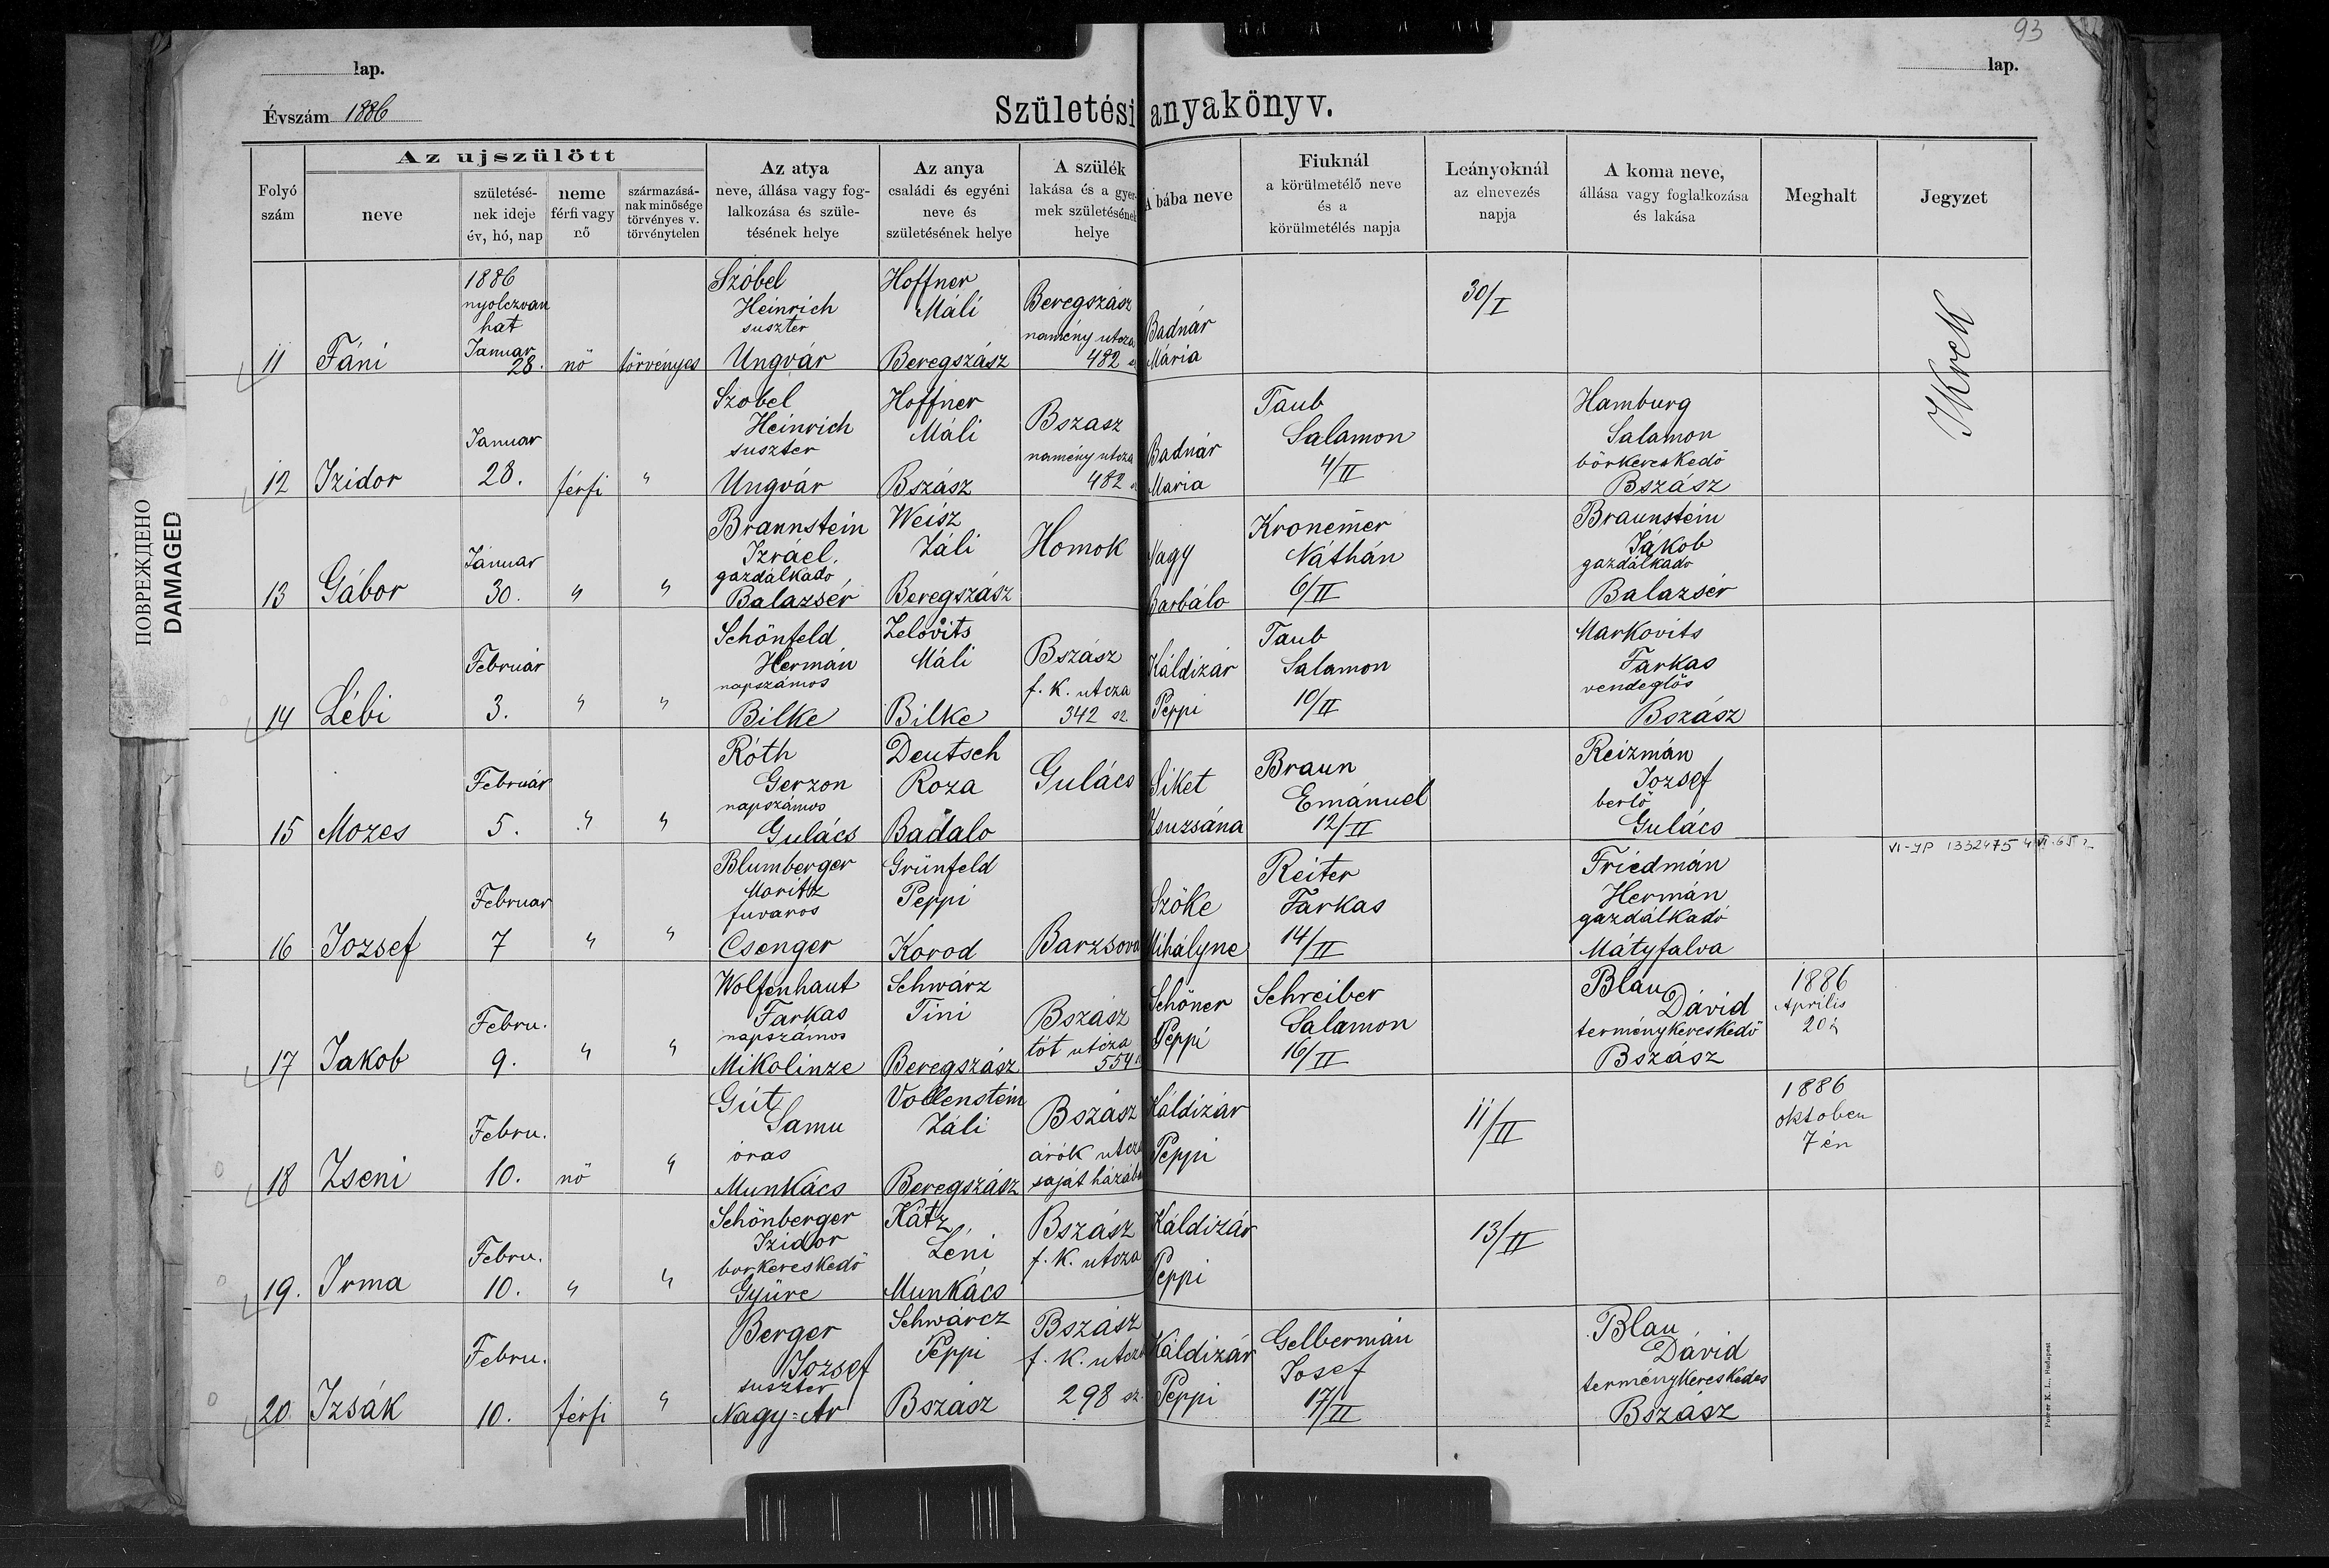 93
lap.
lap.
Évszám 1886
Születési anyakönyv.
Folyó szám
Az ujszülött
neve
születésé-
nek ideje
év, hó, nap
neme
férfi vagy
nő
származásá-
nak minősége
törvényes v.
törvénytelen
Az atya
neve, állása vagy fog-
lalkozása és szüle-
tésének helye
Az anya
családi és egyéni
neve és
születésének helye
A szülék
lakása és a gyer-
mek születésének
helye
A bába neve
Fiuknál
a körülmetélő neve
és a
körülmetélés napja
Leányoknál
az elnevezés
napja
A koma neve,
állása vagy foglalkozása
és lakása
Meghalt
Jegyzet
11 Fáni
1886
nyolczvan
hat
Januar
28.
nő
törvényes
Szóbel
Heinrich
suszter
Ungvár
Hoffner
Máli
Beregszász
Beregszász
namény utcza
482
Badnár
Mária
30/I
12 Izidor
Januar
28.
férfi
"
Szobel
Heinrich
suszter
Ungvár
Hoffner
Máli
Bszász
Bszasz
namény utcza
482
Badnár
Maria
Taub
Salamon
4/II
Hamburg
Salamon
bőrkereskedő
Bszász
13 Gábor
Január
30.
"
"
Brannstein
Izráel.
gazdálkadó
Balazsér
Weisz
Záli
Beregszász
Homok
Nagy
Barbálo
Kronemer
Náthán
6/II
Braunstein
Jákob
gazdálkadó
Balazsér
14 Lébi
Február
3.
"
"
Schönfeld
Hermán
napszámos
Bilke
Zelovits
Máli
Bilke
Bszász
f. k. utcza
342 sz.
Káldizár
Peppi
Taub
Salamon
10/II
Markovits
Farkas
vendeglős
Bszász
15 Mozes
Február
5.
"
"
Róth
Gerzon
napszámos
Gulács
Deutsch
Roza
Badalo
Gulács
Siket
Zsuzsána
Braun
Emánuel
12/II
Reizmán
Jozsef
berlő
Gulács
VI-ЯР 1332475
16 Jozsef
Februar
7
"
"
Blumberger
Moritz
fuvaros
Csenger
Grünfeld
Peppi
Korod
Barzsova
Szőke
Mihályne
Reiter
Farkas
14/II
Friedmán
Hermán
gazdálkadó
Mátyfalva
17 Jakob
Febru.
9.
"
"
Wolfenhaut
Farkas
napszámos
Mikolinze
Schwárz
Tini
Beregszász
Bszász
tót utcza
554
Schőner
Peppi
Schreiber
Salamon
16/II
Blau
Dávid
terménykereskedő
Bszász
1886
Aprilis
20
18 Zseni
Febru.
10.
nő
"
Gút
Samu
óras
Munkács
Vollenstein
Záli
Beregszász
Bszász
árók utcza
saját házáb
Káldizár
Peppi
11/II
1886
oktober
7 én
19. Irma
Febru.
10.
"
"
Schönberger
Izidor
borkereskedő
Gyüre
Kátz
Léni
Munkács
Bszász
f. k. utcza
Káldizár
Peppi
13/II
20 Izsák
Febru.
10.
férfi
"
Berger
Jozsef
suszter
Nagy-Ar
Schwárcz
Peppi
Bszász
Bszász
f. k. utcza
298 sz.
Káldizár
Peppi
Gelbermán
Josef
17/II
Blau
Dávid
terménykereskedes
Bszász
ПОВРЕЖДЕНО
DAMAGED